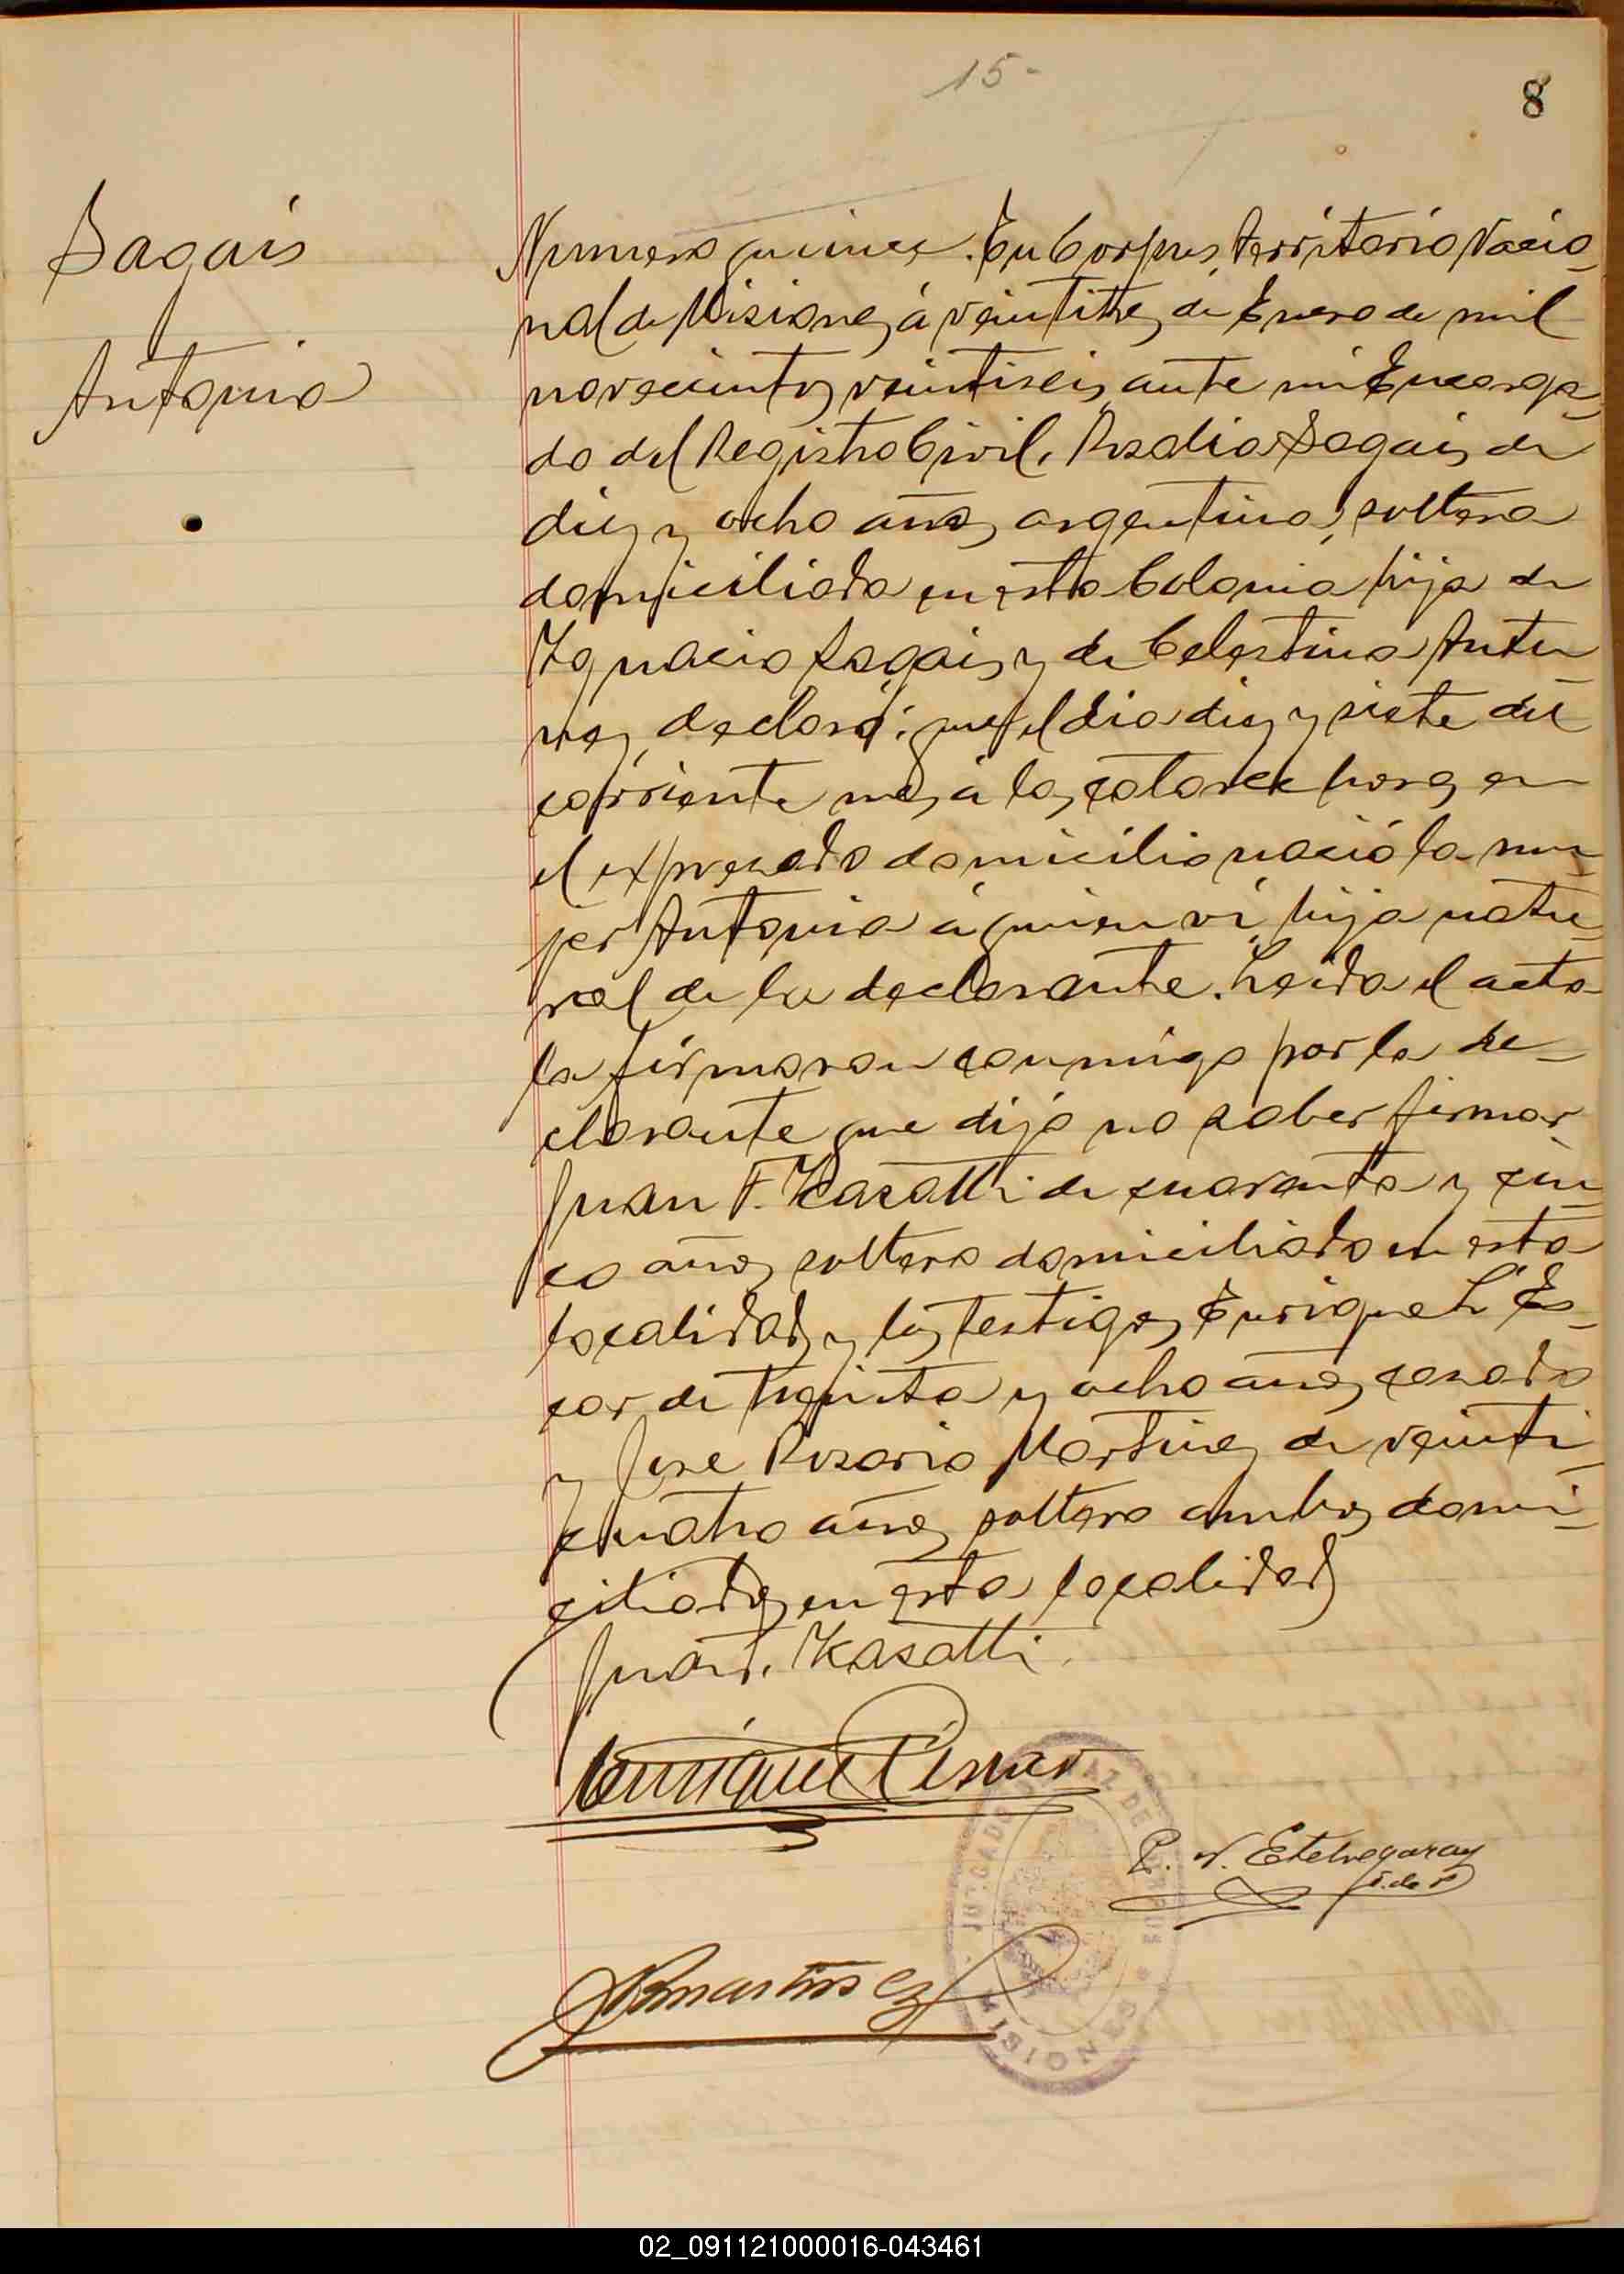 15-
8
Sagais
Antonia
Numero quince. En Corpus, Territorio Nacio-
nal de Misiones, á veintitres de Enero de mil
novecientos veintiseis, ante mi Encarga-
do del Registro Civil, Rosalia Sagais, de
diez y ocho años, argentina, soltera
domiciliada en esta Colonia hija de
Ygnacio Sagais y de Celestina Antu-
nez, declaró: que el dia diez y siete del
corriente mes, á las catorce horas, en
el expresado domicilio nació la mu-
jer Antonia á quien ví, hija natu-
ral de la declarante. Leida el acta
la firmaron conmigo por la de-
clarante que dijo no saber firmar
Juan F. Kasatti de cuarenta y cin-
co años, soltero domiciliado en esta
localidad, y los testigos, Enrique L Es-
car de treinta y ocho años, casado
y José Rosario Martinez de veinti-
cuatro años, soltero ambos domi-
ciliados, en esta localidad
Juan F. Kasatti.
Enrique
P. N. Etchegaray
J. de P
Martinez
JUZGADO DE PAZ DE CORPUS
MISIONES
02_091121000016-043461